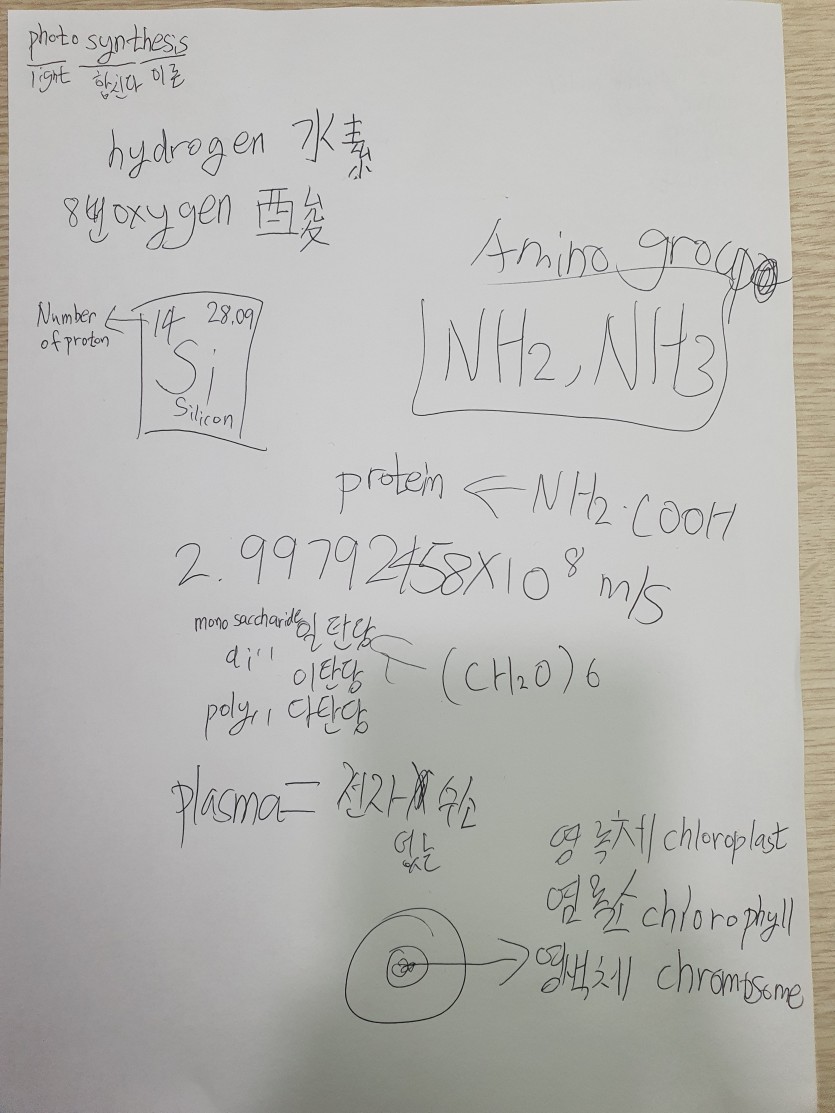 photosynthesis
light 합친다 이론
hydrogen 水素
8번 oxygen 酸
Amino group
NH2, NH3
Number of proton
14 28.09
Si
Silicon
protein ← NH2·COOH
2.99792458×10⁸ m/s
mono saccharide 일탄당
di〃 이탄당
poly〃 다탄당
(CH₂O)6
plasma = 전자 수소
없는
영녹체 chloroplast
염록소 chlorophyll
염색체 chromosome